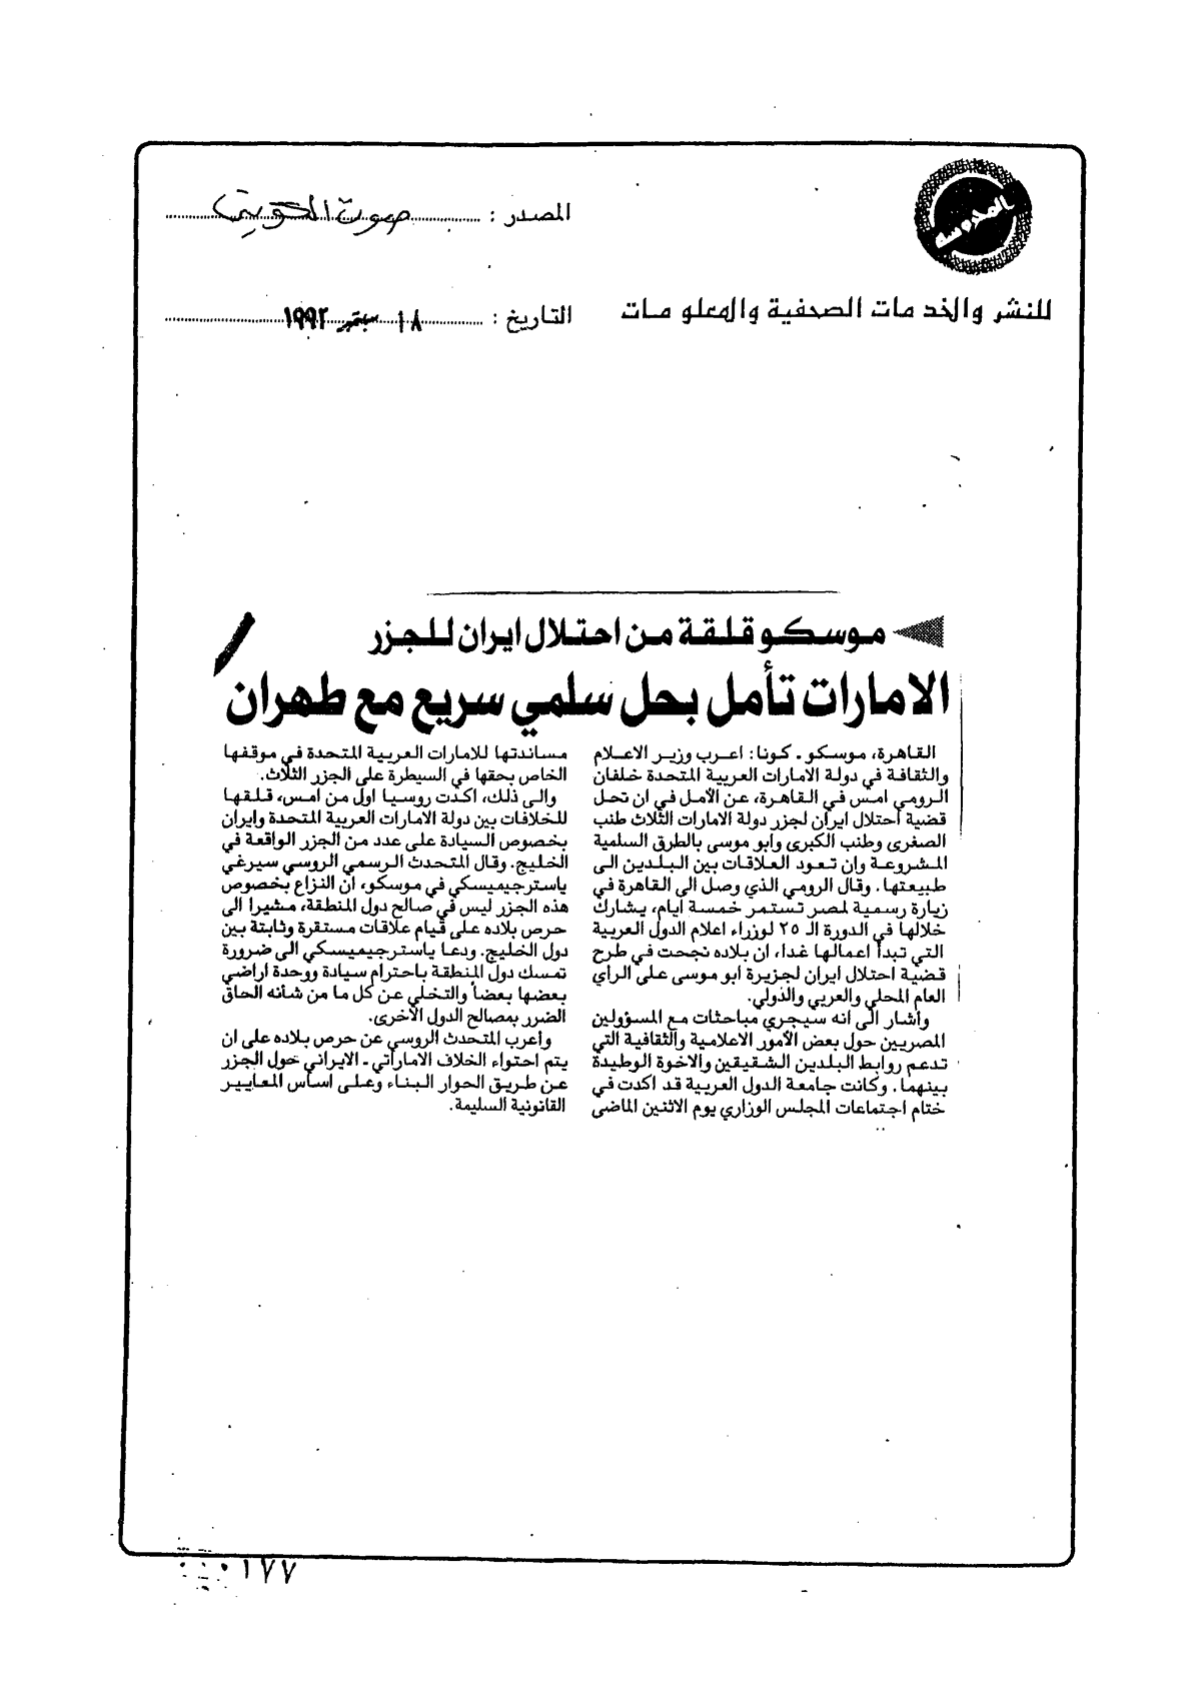 المحروسة
المصدر : صوت الكويت
للنشر والخدمات الصحفية والمعلومات
التاريخ : ١٨ سبتمبر ١٩٩٢
موسكو قلقة من احتلال ايران للجزر
الامارات تأمل بحل سلمي سريع مع طهران
القاهرة، موسكو ـ كونا: اعرب وزير الاعلام
والثقافة في دولة الامارات العربية المتحدة خلفان
الرومي امس في القاهرة، عن الأمل في ان تحل
قضية احتلال ايران لجزر دولة الامارات الثلاث طنب
الصغرى وطنب الكبرى وابو موسى بالطرق السلمية
المشروعة وان تعود العلاقات بين البلدين الى
طبيعتها. وقال الرومي الذي وصل الى القاهرة في
زيارة رسمية لمصر تستمر خمسة ايام، يشارك
خلالها في الدورة الـ ٢٥ لوزراء اعلام الدول العربية
التي تبدأ اعمالها غدا، ان بلاده نجحت في طرح
قضية احتلال ايران لجزيرة ابو موسى على الراي
العام المحلي والعربي والدولي.
واشار الى انه سيجري مباحثات مع المسؤولين
المصريين حول بعض الأمور الاعلامية والثقافية التي
تدعم روابط البلدين الشقيقين والاخوة الوطيدة
بينهما. وكانت جامعة الدول العربية قد اكدت في
ختام اجتماعات المجلس الوزاري يوم الاثنين الماضي
مساندتها للامارات العربية المتحدة في موقفها
الخاص بحقها في السيطرة على الجزر الثلاث.
والى ذلك، اكدت روسيا اول من امس، قلقها
للخلافات بين دولة الامارات العربية المتحدة وايران
بخصوص السيادة على عدد من الجزر الواقعة في
الخليج. وقال المتحدث الرسمي الروسي سيرغي
ياسترجيمبسكي في موسكو، ان النزاع بخصوص
هذه الجزر ليس في صالح دول المنطقة، مشيرا الى
حرص بلاده على قيام علاقات مستقرة وثابتة بين
دول الخليج. ودعا ياسترجيمبسكي الى ضرورة
تمسك دول المنطقة باحترام سيادة ووحدة اراضي
بعضها بعضاً والتخلي عن كل ما من شأنه الحاق
الضرر بمصالح الدول الأخرى.
واعرب المتحدث الروسي عن حرص بلاده على ان
يتم احتواء الخلاف الاماراتي ـ الايراني حول الجزر
عن طريق الحوار البناء وعلى اساس المعايير
القانونية السليمة.
٠١٧٧